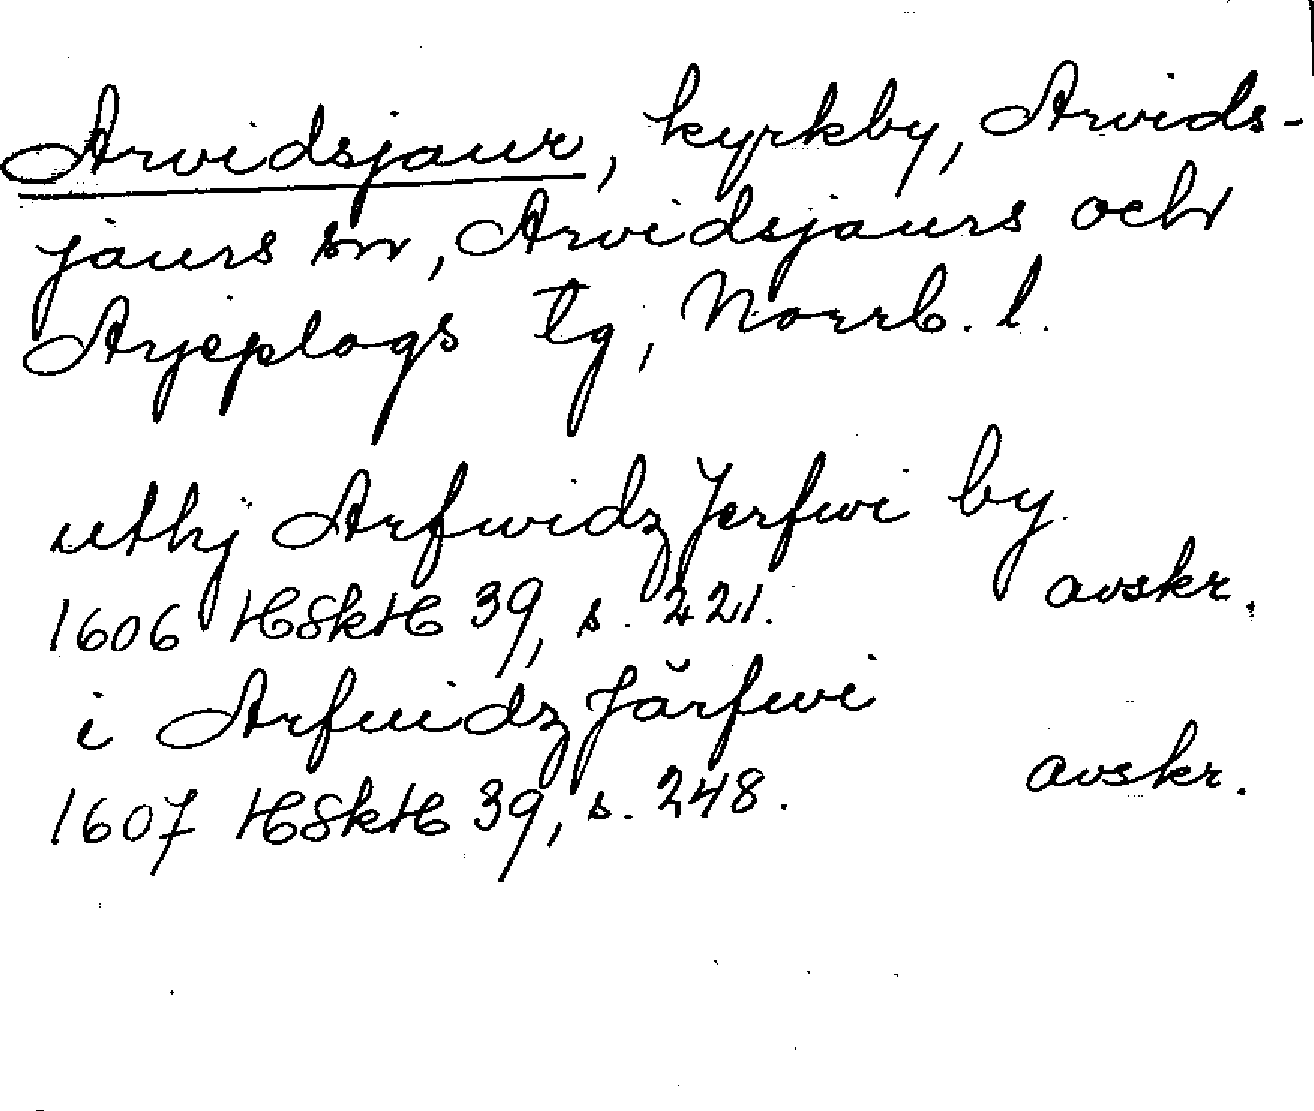 Arvidsjaur, kyrkby, Arvids-
jaurs sn, Arvidsjaurs och
Arjeplogs tg, Norrb. l.
uthj Arfwidz Jerfwi by.
1606 HSkH 39, s. 221. avskr.
i Arfuidz Järfwi
1607 HSkH 39, s. 248. avskr.